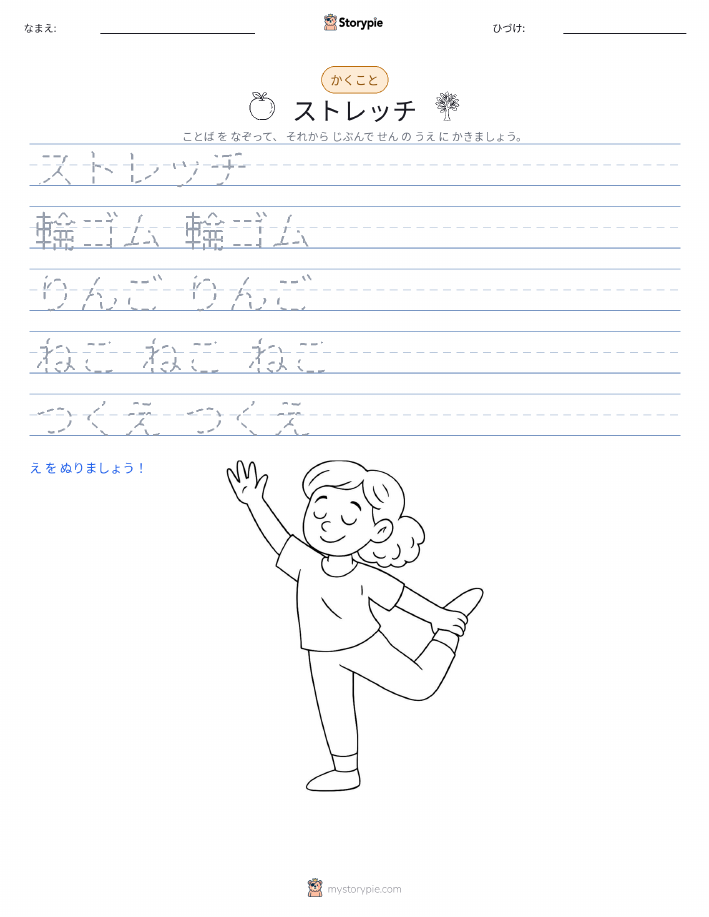 なまえ:
Storypie
ひづけ:
かくこと
ストレッチ
ことば を なぞって、 それから じぶんで せん の うえ に かきましょう。
ストレッチ
輪ゴム 輪ゴム
りんご りんご
ねこ ねこ ねこ
つくえ つくえ
え を ぬりましょう！
mystorypie.com